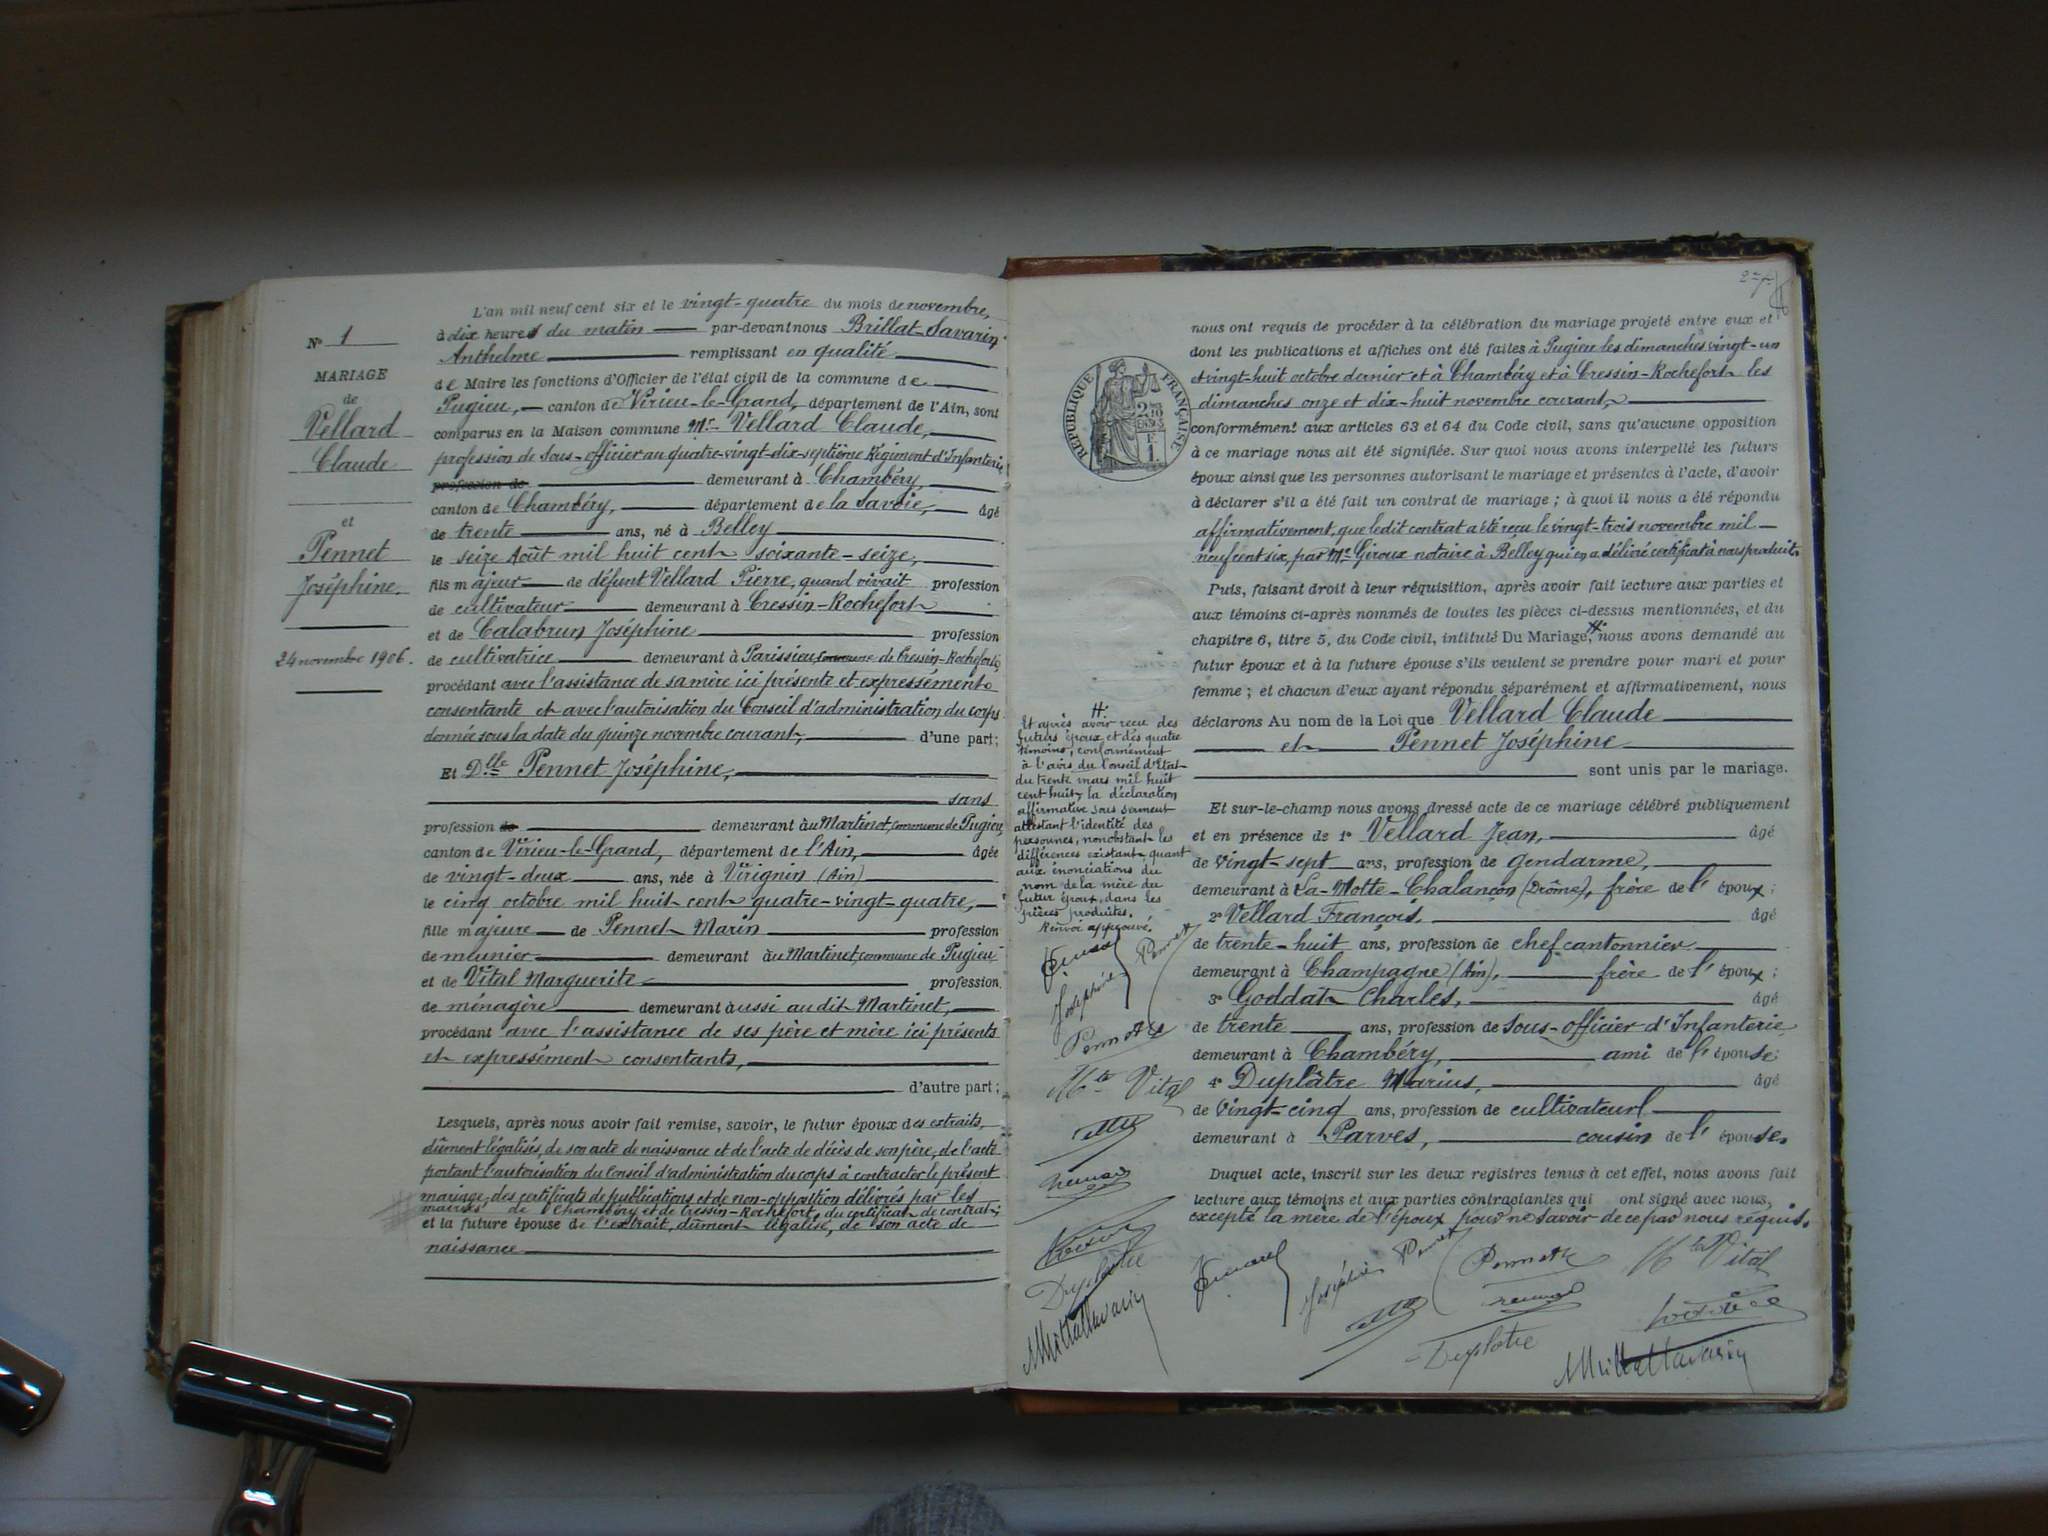 N° 1
MARIAGE
de
Vellard
Claude
et
Pennet
Joséphine.
24 novembre 1906.
L'an mil neuf cent six et le vingt-quatre du mois de novembre,
à dix heures du matin par-devant nous Brillat-Savarin
Anthelme remplissant en qualité
de Maire les fonctions d'Officier de l'état civil de la commune de
Pugieu, canton de Virieu-le-Grand, département de l'Ain, sont
comparus en la Maison commune Mr Vellard Claude,
profession de Sous-officier au quatre-vingt-dix-septième Régiment d'Infanterie,
profession de demeurant à Chambéry,
canton de Chambéry, département de la Savoie, âgé
de trente ans, né à Belley
le seize Août mil huit cent soixante-seize,
fils majeur de défunt Vellard Pierre, quand vivait profession
de cultivateur demeurant à Cressin-Rochefort
et de Calabrun Joséphine profession
de cultivatrice demeurant à Parissieu, commune de Cressin-Rochefort,
procédant avec l'assistance de sa mère ici présente et expressément
consentante et avec l'autorisation du Conseil d'administration du corps
donnée sous la date du quinze novembre courant, d'une part;
Et Dlle Pennet Joséphine,
sans
profession de demeurant au Martinet, commune de Pugieu,
canton de Virieu-le-Grand, département de l'Ain, âgée
de vingt-deux ans, née à Virignin (Ain)
le cinq octobre mil huit cent quatre-vingt-quatre,
fille majeure de Pennet Marin profession
de meunier demeurant au Martinet, commune de Pugieu
et de Vital Marguerite profession
de ménagère demeurant aussi au dit Martinet,
procédant avec l'assistance de ses père et mère ici présents
et expressément consentants,
d'autre part;
Lesquels, après nous avoir fait remise, savoir, le futur époux des extraits,
dûment légalisés, de son acte de naissance et de l'acte de décès de son père, de l'acte
portant l'autorisation du Conseil d'administration du corps à contracter le présent
mariage, des certificats de publications et de non-opposition délivrés par les
maires de Chambéry et de Cressin-Rochefort, du certificat de contrat;
et la future épouse de l'extrait, dûment légalisé, de son acte de
naissance
RÉPUBLIQUE FRANÇAISE
nous ont requis de procéder à la célébration du mariage projeté entre eux et
dont les publications et affiches ont été faites à Pugieu les dimanches vingt-un
et vingt-huit octobre dernier et à Chambéry et à Cressin-Rochefort les
dimanches onze et dix-huit novembre courant,
conformément aux articles 63 et 64 du Code civil, sans qu'aucune opposition
à ce mariage nous ait été signifiée. Sur quoi nous avons interpellé les futurs
époux ainsi que les personnes autorisant le mariage et présentes à l'acte, d'avoir
à déclarer s'il a été fait un contrat de mariage; à quoi il nous a été répondu
affirmativement, que ledit contrat a été reçu le vingt-trois novembre mil
neuf cent six, par Me Giroux notaire à Belley qui en a délivré certificat à nous produit.
Puis, faisant droit à leur réquisition, après avoir fait lecture aux parties et
aux témoins ci-après nommés de toutes les pièces ci-dessus mentionnées, et du
chapitre 6, titre 5, du Code civil, intitulé Du Mariage, nous avons demandé au
futur époux et à la future épouse s'ils veulent se prendre pour mari et pour
femme; et chacun d'eux ayant répondu séparément et affirmativement, nous
déclarons Au nom de la Loi que Vellard Claude
et Pennet Joséphine
sont unis par le mariage.
Et sur-le-champ nous avons dressé acte de ce mariage célébré publiquement
et en présence de 1° Vellard Jean, âgé
de vingt-sept ans, profession de gendarme,
demeurant à La-Motte-Chalancon (Drôme), frère de l'époux;
2° Vellard François, âgé
de trente-huit ans, profession de chef cantonnier
demeurant à Champagne (Ain), frère de l'époux;
3° Goddat Charles, âgé
de trente ans, profession de Sous-officier d'Infanterie
demeurant à Chambéry, ami de l'épouse;
4° Duplâtre Marius, âgé
de vingt-cinq ans, profession de cultivateur
demeurant à Parves, cousin de l'épouse.
Duquel acte, inscrit sur les deux registres tenus à cet effet, nous avons fait
lecture aux témoins et aux parties contractantes qui ont signé avec nous,
excepté la mère de l'époux pour ne savoir de ce par nous réquis.
Et après avoir reçu des
futurs époux et des quatre
témoins, conformément
à l'avis du Conseil d'Etat
du trente mars mil huit
cent huit, la déclaration
affirmative sous serment
attestant l'identité des
personnes, nonobstant les
différences existant quant
aux énonciations du
nom de la mère du
futur époux, dans les
pièces produites.
Renvoi approuvé.
Joséphine Pennet
Pennet
Mte Vital
Duplatre
Joséphine Pennet
Pennet
Mte Vital
Duplatre